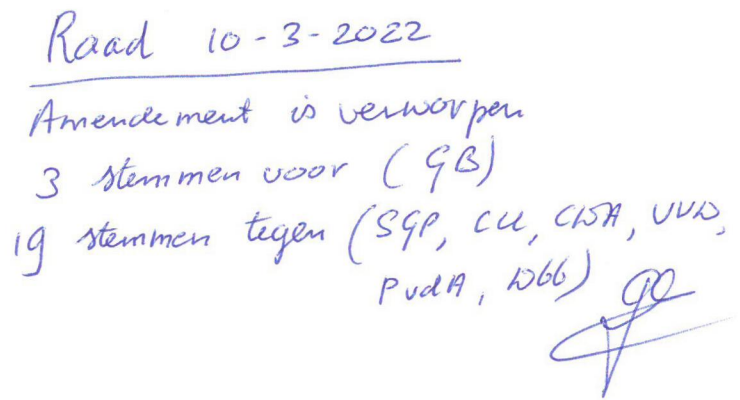 Raad 10-3-2022
Amendement is verworpen
3 stemmen voor (GB)
19 stemmen tegen (SGP, CU, CDA, VVD,
PvdA, D66)